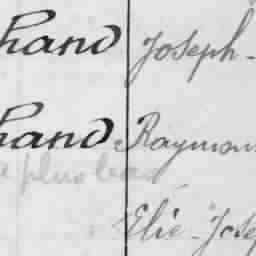 hand Joseph-
hand Raymon
plus bas
Elie-Josep